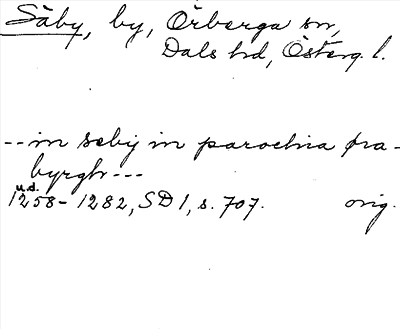 Säby, by, Örberga sn,
Dals hd, Österg. l.
--in seby in parochia øra-
byrgh---
u.d.
1258-1282, SD 1, s. 707. orig.